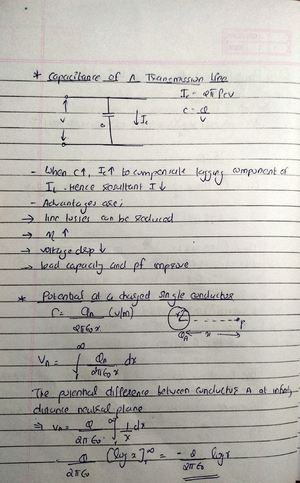 * Capacitance of A Transmission Line
Ic = 2π f c v
c = Q/V
V C ↓Ic
- When C↑, Ic↑ to compensate lagging component of
IL. Hence resultant I↓
- Advantages are;
→ line losses can be reduced
→ η ↑
→ voltage drop ↓
→ load capacity and pf improve
* Potential at a charged single conductor
= QA / 2πε0x (v/m)
QA x P
VA = ∫ QA / 2πε0x dx
The potential difference between conductor A at
distance neutral plane
⇒ VA = Q / 2πε0 ∫ 1/x dx
= Q / 2πε0 [log x]∞ = - Q / 2πε0 log x